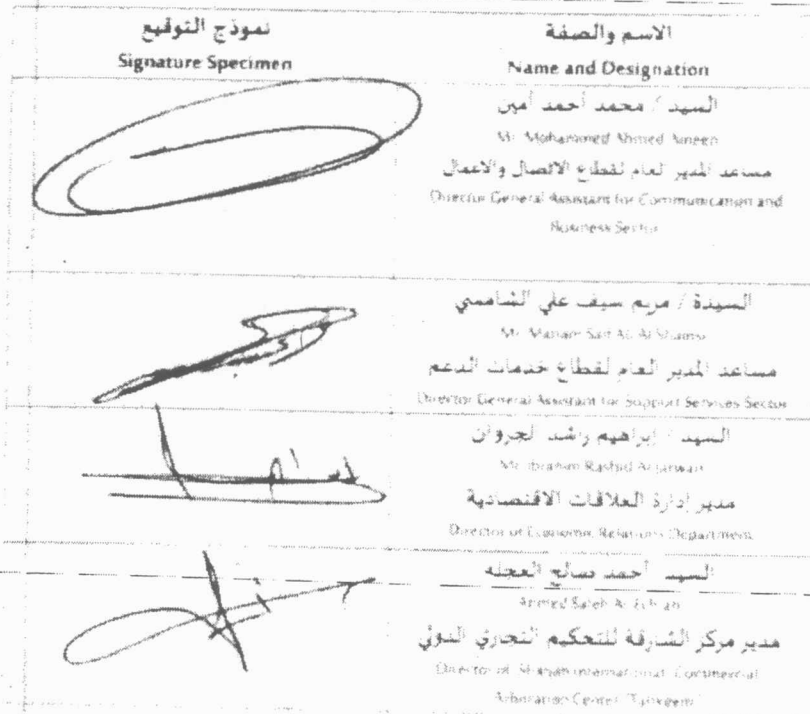 نموذج التوقيع
Signature Specimen
الاسم والصفة
Name and Designation
السيد / محمد أحمد أمين
Mr. Mohammed Ahmed Ameen
مساعد المدير العام لقطاع الاتصال والاعمال
Director General Assistant for Communication and
Business Sector
السيدة / مريم سيف علي الشامسي
Mariam Saif Al Shamsi
مساعد المدير العام لقطاع خدمات الدعم
Director General Assistant for Support Services Sector
السيد / إبراهيم راشد الجروان
Mr. Ibrahim Rashid Al Jarwan
مدير إدارة العلاقات الاقتصادية
Director of Economic Relations Department
السيد أحمد صالح العجله
Ahmed Saleh Al
مدير مركز الشارقة للتحكيم التجاري الدولي
Director of Sharjah International Commercial
Arbitration Center "Tahkeem"